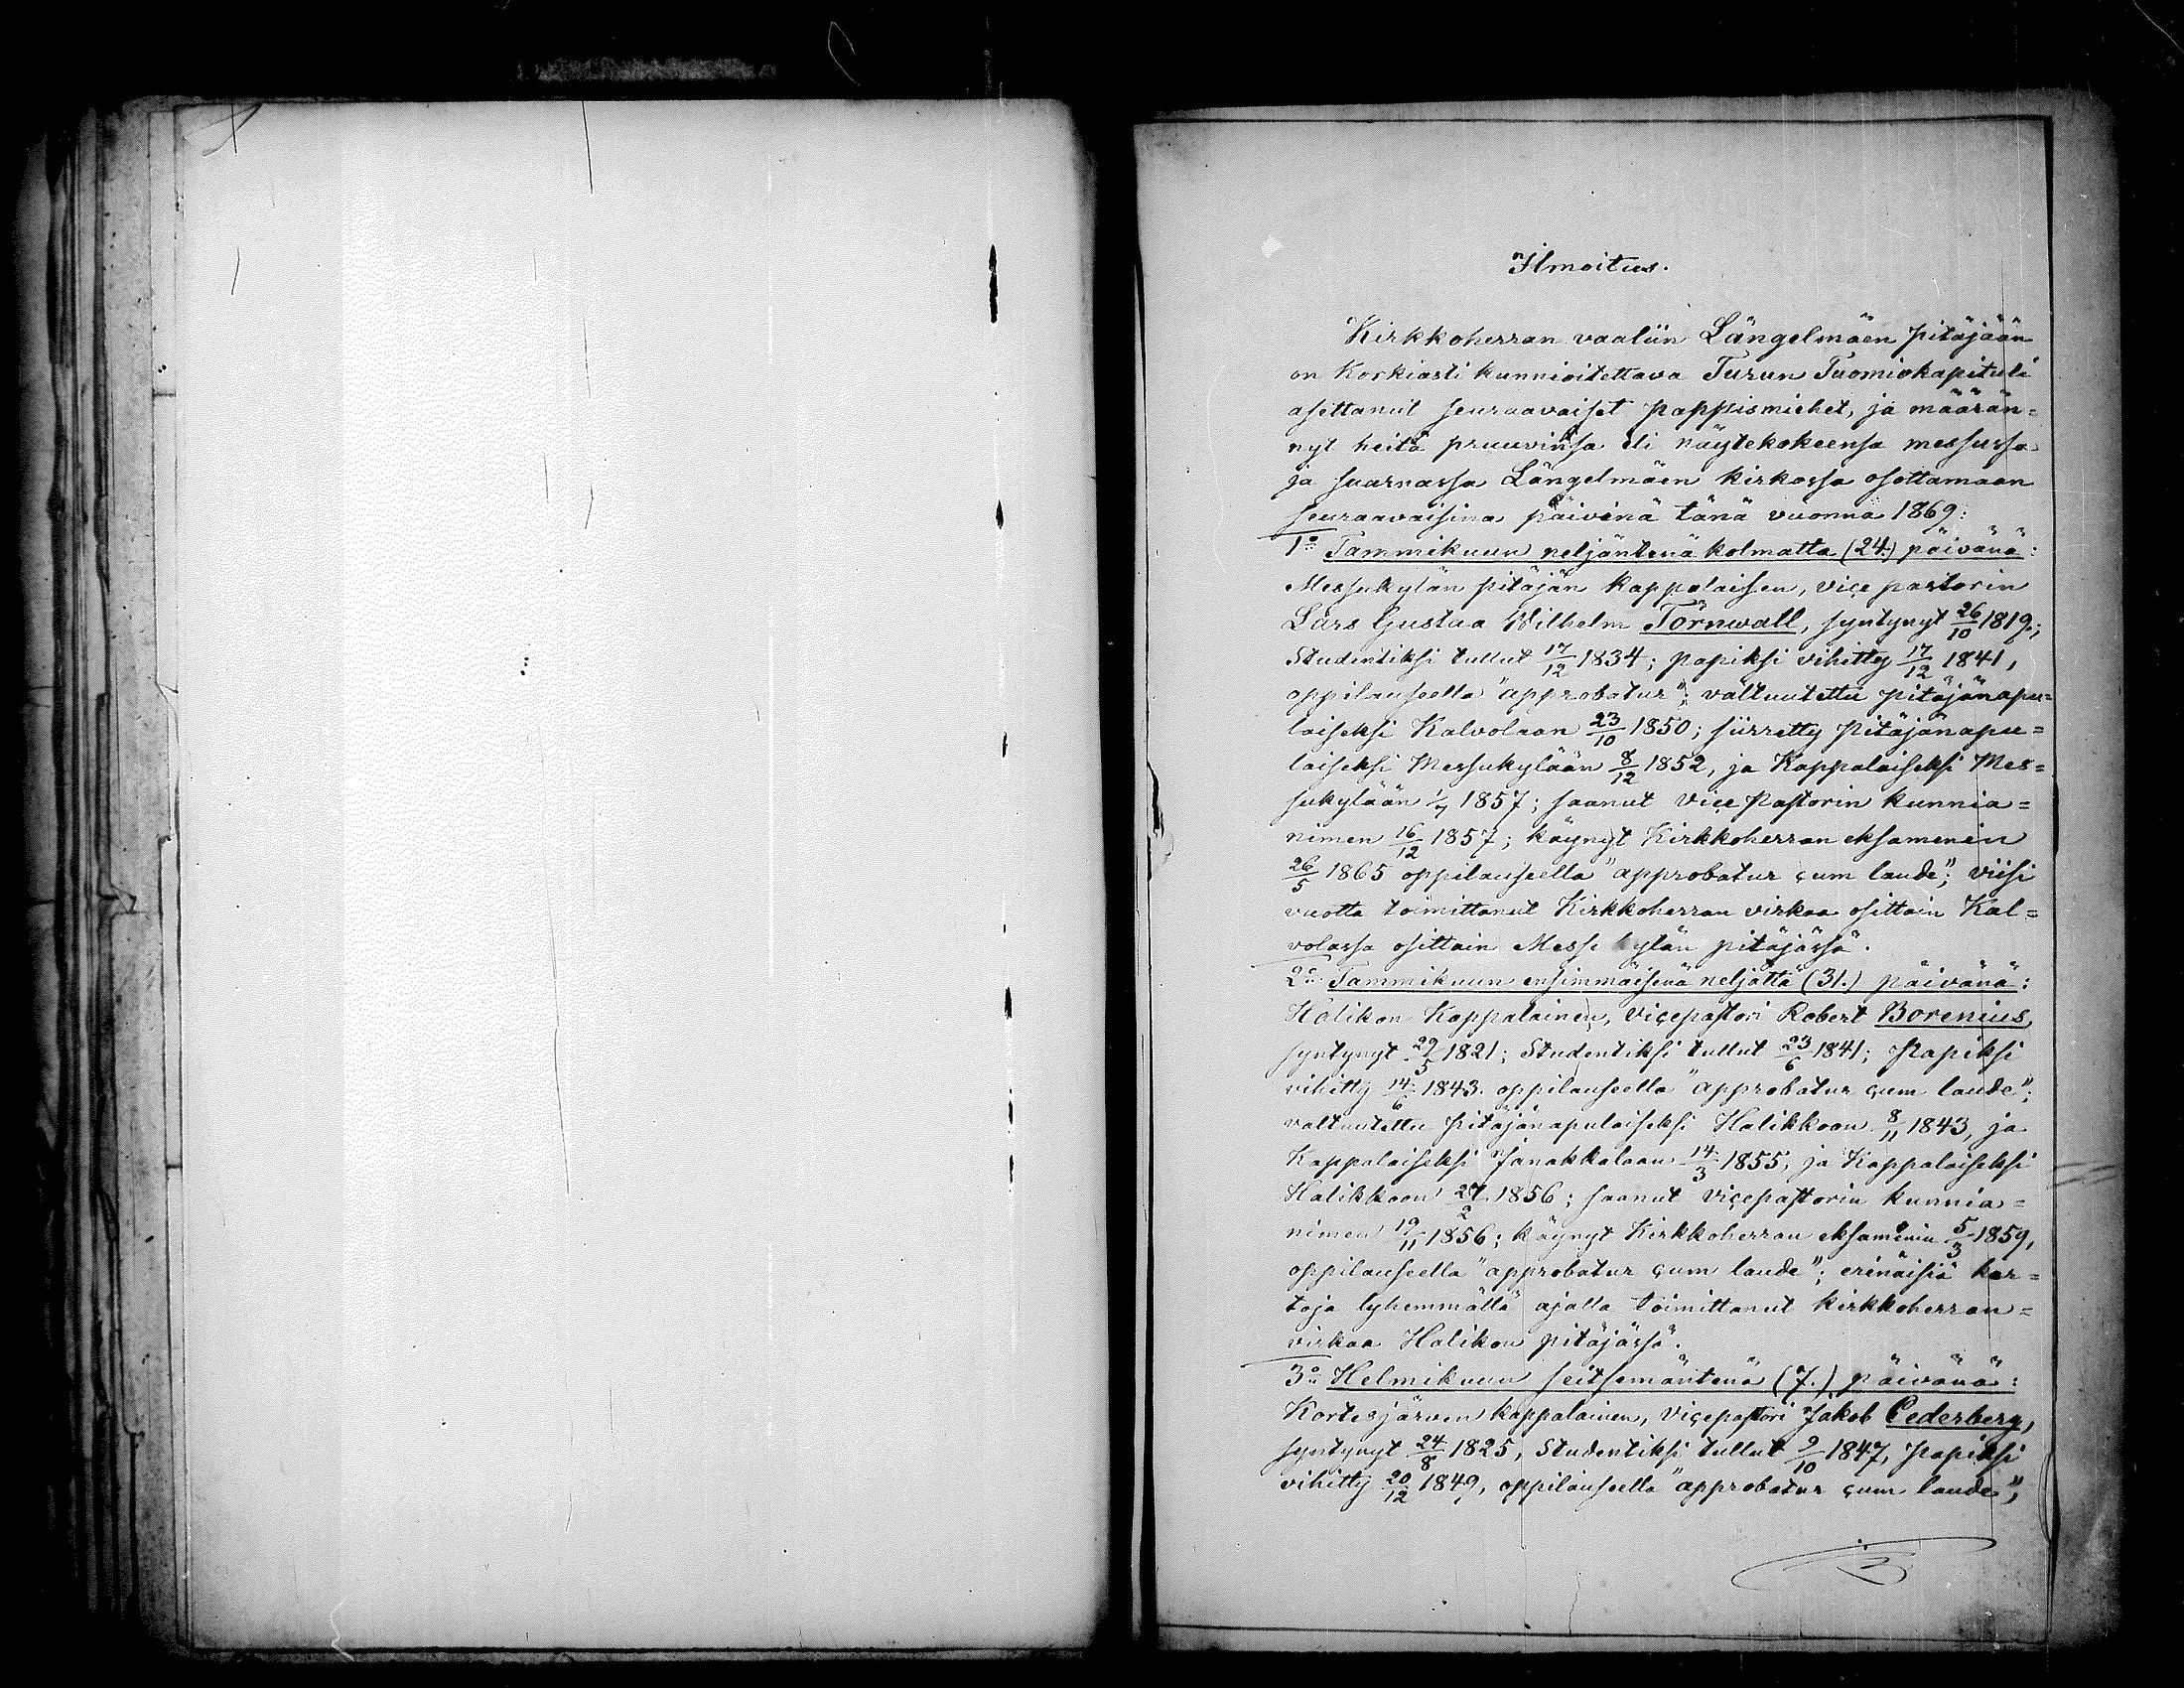 Ilmoitus.
Kirkkoherran vaaliin Längelmäen pitäjään
on Korkiasti kunnioitettava Turun Tuomiokapituli
asettanut seuraavaiset pappismiehet, ja määrän=
nyt heitä pruuvinsa eli näytekokeensa messussa
ja saarnassa Längelmäen kirkossa osottamaan
seuraavaisina päivinä tänä vuonna 1869:
1:o Tammikuun neljäntenä kolmatta (24.) päivänä:
Messukylän pitäjän kappalaisen, viçe pastorin
Lars Gustaa Wilhelm Törnwall, syntynyt 26/10 1819;
Studentiksi tullut 17/12 1834; papiksi vihitty 17/12 1841,
oppilauseella "approbatur"; valtuutettu pitäjänapu=
laiseksi Kalvolaan 23/10 1850; siirretty Pitäjänapu=
laiseksi Messukylään 8/12 1852, ja Kappalaiseksi Mes=
sukylään 1/7 1857; saanut viçe Pastorin kunnia=
nimen 16/12 1857; käynyt Kirkkoherran eksamenin
26/5 1865 oppilauseella "approbatur çum laude"; viisi
vuotta toimittanut Kirkkoherran virkaa osittain Kal=
volassa osittain Messukylän pitäjässä.
2:o Tammikuun ensimmäisenä neljättä (31.) päivänä:
Halikon Kappalainen, Viçepastori Robert Borenius,
syntynyt 29/5 1821; Studentiksi tullut 23/6 1841; Papiksi
vihitty 14/6 1843. oppilauseella "approbatur çum laude";
valtuutettu pitäjänapulaiseksi Halikkoon 8/11 1843, ja
Kappalaiseksi Janakkalaan 14/3 1855, ja Kappalaiseksi
Halikkoon 27/2 1856; saanut viçepastorin kunnia=
nimen 19/11 1856; käynyt Kirkkoherran eksamenin 5/3 1859,
oppilauseella "approbatur çum laude"; erinäisiä ker=
toja lyhemmällä ajalla toimittanut kirkkoherran=
virkaa Halikon pitäjässä.
3:o Helmikuun seitsemäntenä (7.) päivänä:
Kortesjärven kappalainen, Viçepastori Jakob Cederberg,
syntynyt 24/8 1825, Studentiksi tullut 9/10 1847, papiksi
vihitty 20/12 1849, oppilauseella "approbatur çum laude",